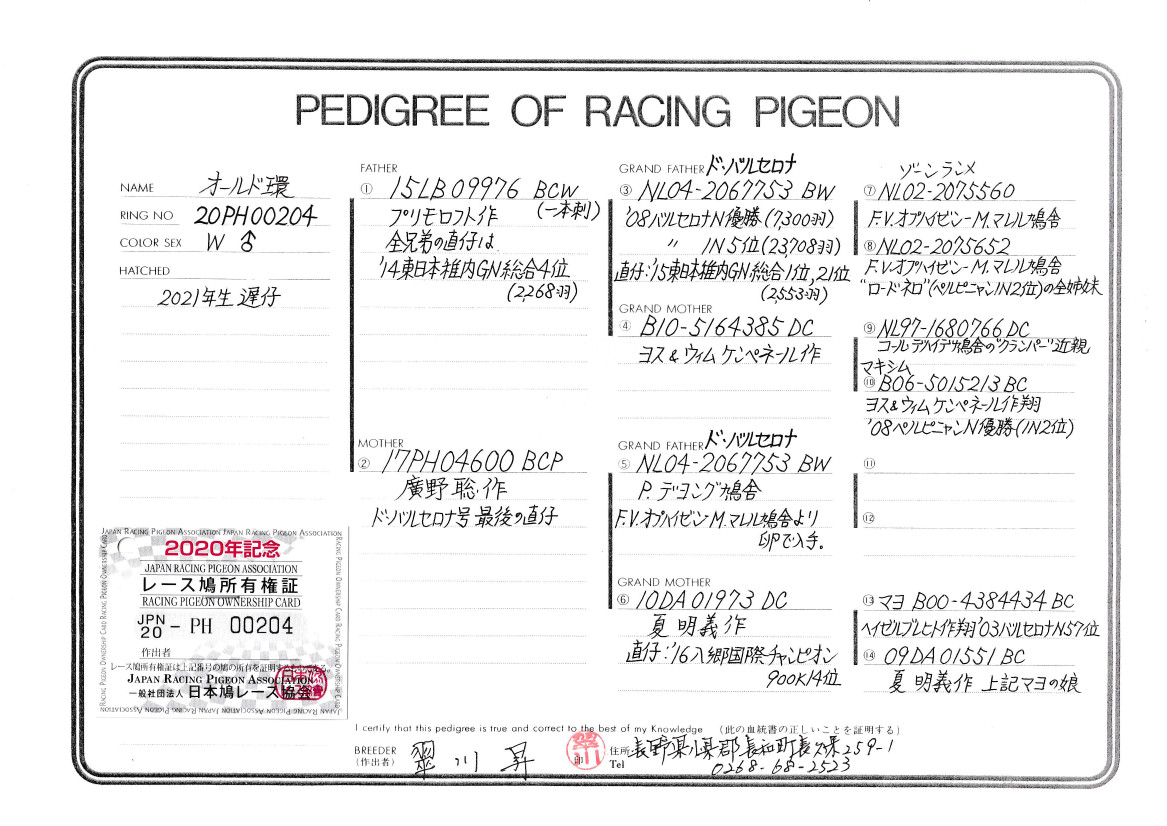 PEDIGREE OF RACING PIGEON
NAME オールド環
RING NO 20PH00204
COLOR SEX W ♂
HATCHED
2021年生 遅仔
FATHER
① 15LB09976 BCW
(一本刺)
プリモロフト作
全兄弟の直仔は
'14東日本稚内GN総合4位
(2,268羽)
MOTHER
② 17PH04600 BCP
廣野 聡 作
ド・バルセロナ号 最後の直仔
GRAND FATHER ド・バルセロナ
③ NL04-2067753 BW
'08バルセロナN優勝(7,300羽)
〃 IN5位(23,708羽)
直仔:'15東日本稚内GN総合1位,21位
(2,553羽)
GRAND MOTHER
④ B10-5164385 DC
ヨス&ウィム ケンペネール作
GRAND FATHER ド・バルセロナ
⑤ NL04-2067753 BW
P. デヨング鳩舎
F.V.オプハイゼン M.マレル鳩舎より
卵で入手。
GRAND MOTHER
⑥ 10DA01973 DC
夏 明義 作
直仔:'16八郷国際チャンピオン
900K14位
ゾーンランメ
⑦ NL02-2075560
F.V.オプハイゼン-M.マレル鳩舎
⑧ NL02-2075652
F.V.オプハイゼン-M.マレル鳩舎
"ロードネロ"(ペルピニャンIN2位)の全姉妹
⑨ NL97-1680766 DC
コールデハイデ鳩舎の"クランパー"近親
マキシム
⑩ B06-5015213 BC
ヨス&ウィムケンペネール作翔
'08ペルピニャンN優勝(IN2位)
⑪
⑫
⑬ マヨ B00-4384434 BC
ヘイゼルブレヒト作翔'03バルセロナN57位
⑭ 09DA01551 BC
夏 明義作 上記マヨの娘
JAPAN RACING PIGEON ASSOCIATION JAPAN RACING PIGEON ASSOCIATION
2020年記念
JAPAN RACING PIGEON ASSOCIATION
レース鳩所有権証
RACING PIGEON OWNERSHIP CARD
JPN
20 - PH 00204
作出者
レース鳩所有権証は上記番号の鳩の所有を証明するものである。
JAPAN RACING PIGEON ASSOCIATION
一般社団法人 日本鳩レース協会
I certify that this pedigree is true and correct to the best of my Knowledge (此の血統書の正しいことを証明する)
BREEDER
(作出者) 翠川 昇 印
住所 長野県小県郡長和町長久保259-1
Tel 0268-68-2523